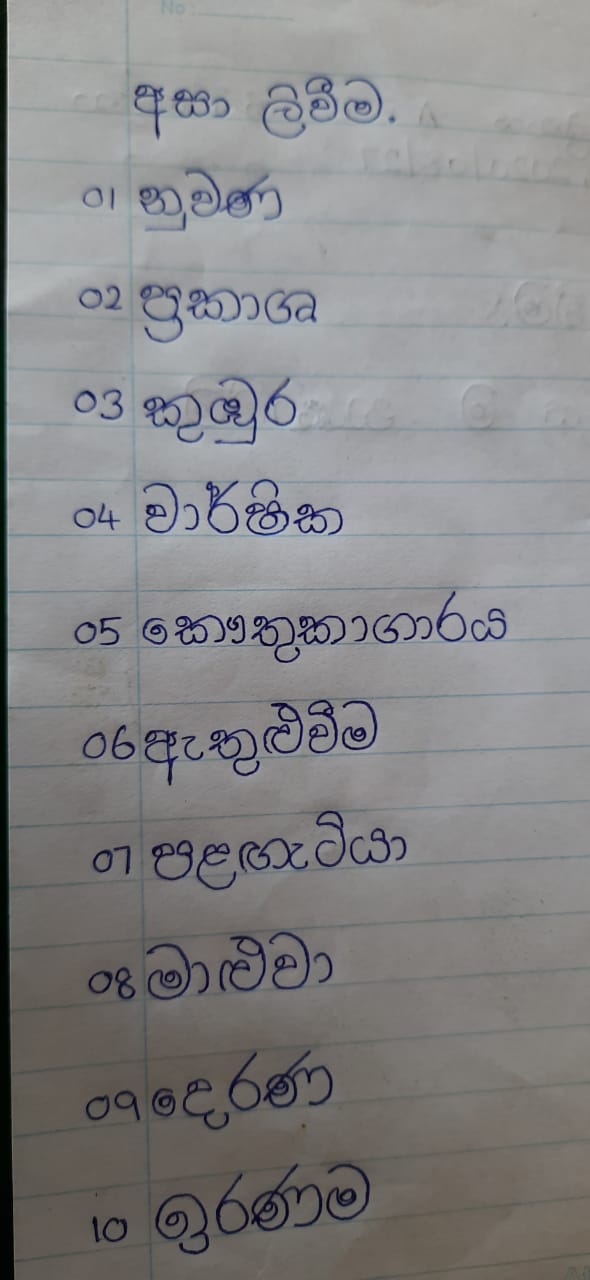 අසා ලිවීම.
01 නුවණ
02 ප්‍රකාශ
03 කුඹුර
04 වාර්ෂික
05 කෞතුකාගාරය
06 ඇතුළුවීම
07 පළඟැටියා
08 මාළුවා
09 දෙරණ
10 ඉරණම